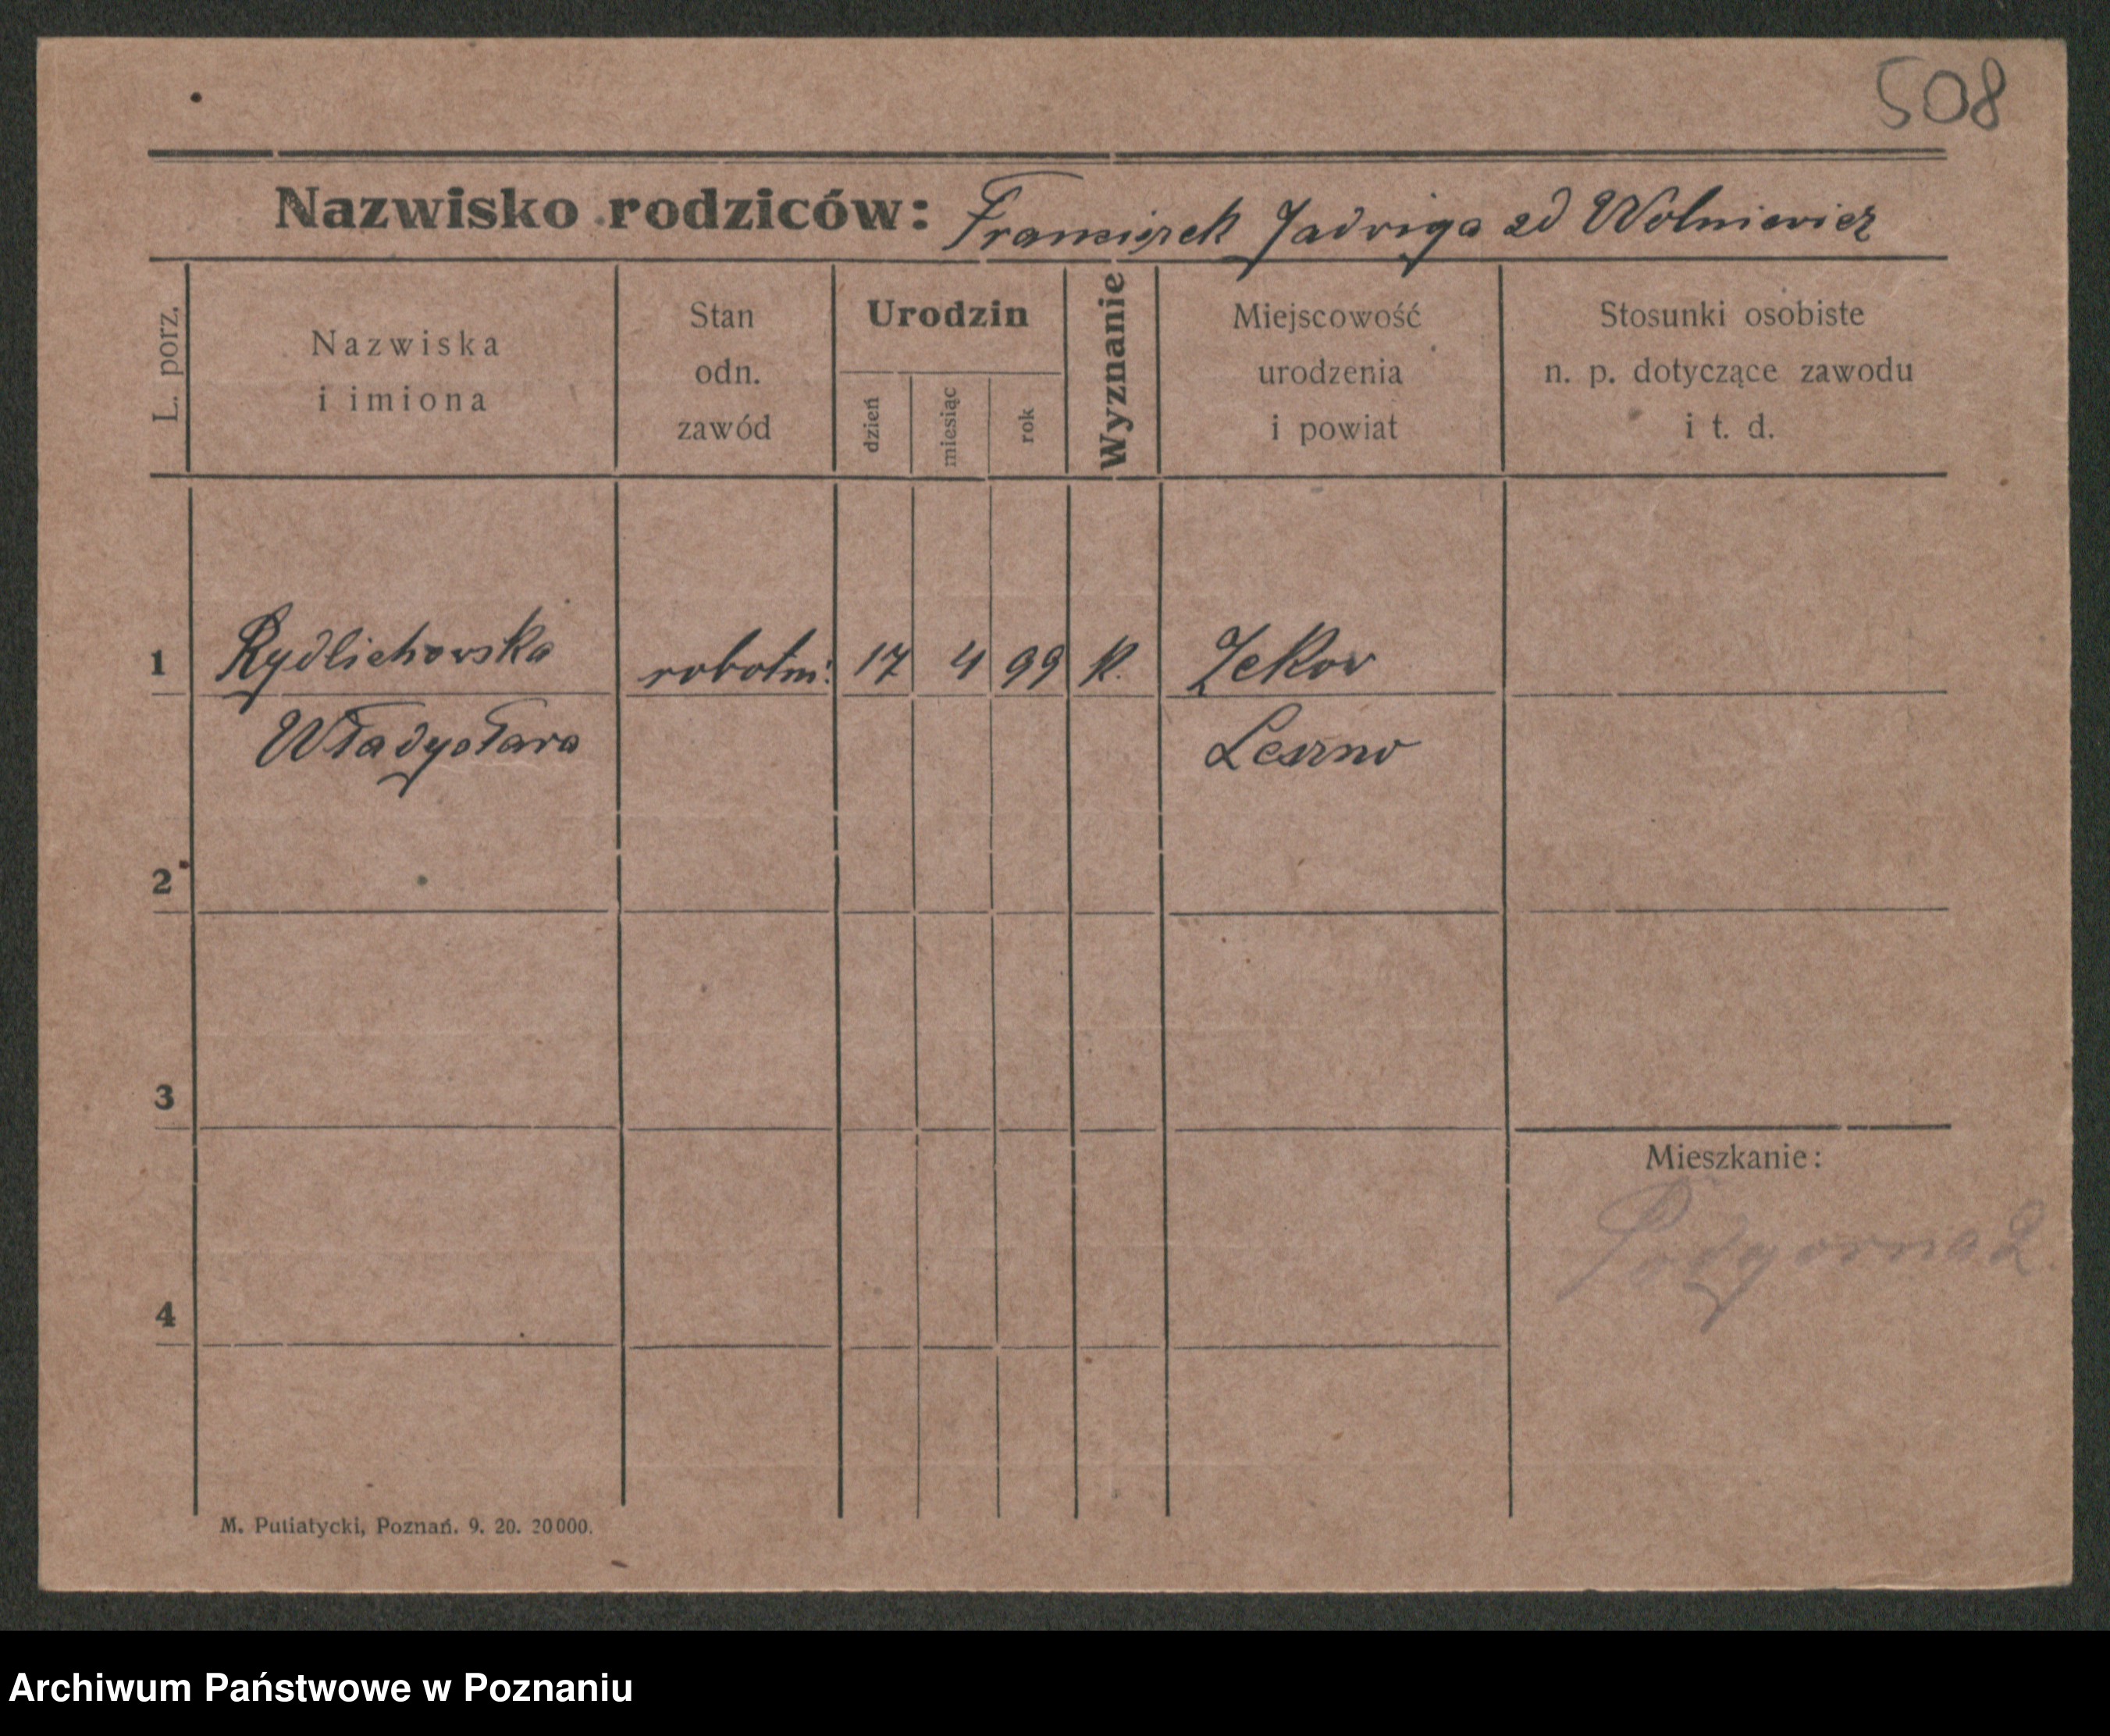 508
Nazwisko rodziców: Franciszek Jadwiga zd Wolniewicz
L. porz.
Nazwiska
i imiona
Stan
odn.
zawód
Urodzin
dzień
miesiąc
rok
Wyznanie
Miejscowość
urodzenia
i powiat
Stosunki osobiste
n. p. dotyczące zawodu
i t. d.
1 Rydlichowska robotni: 17 4 99 k.
Władysława
2
3
Mieszkanie:
Podgorna 2.
4
M. Putiatycki, Poznań. 9. 20. 20000.
Archiwum Państwowe w Poznaniu